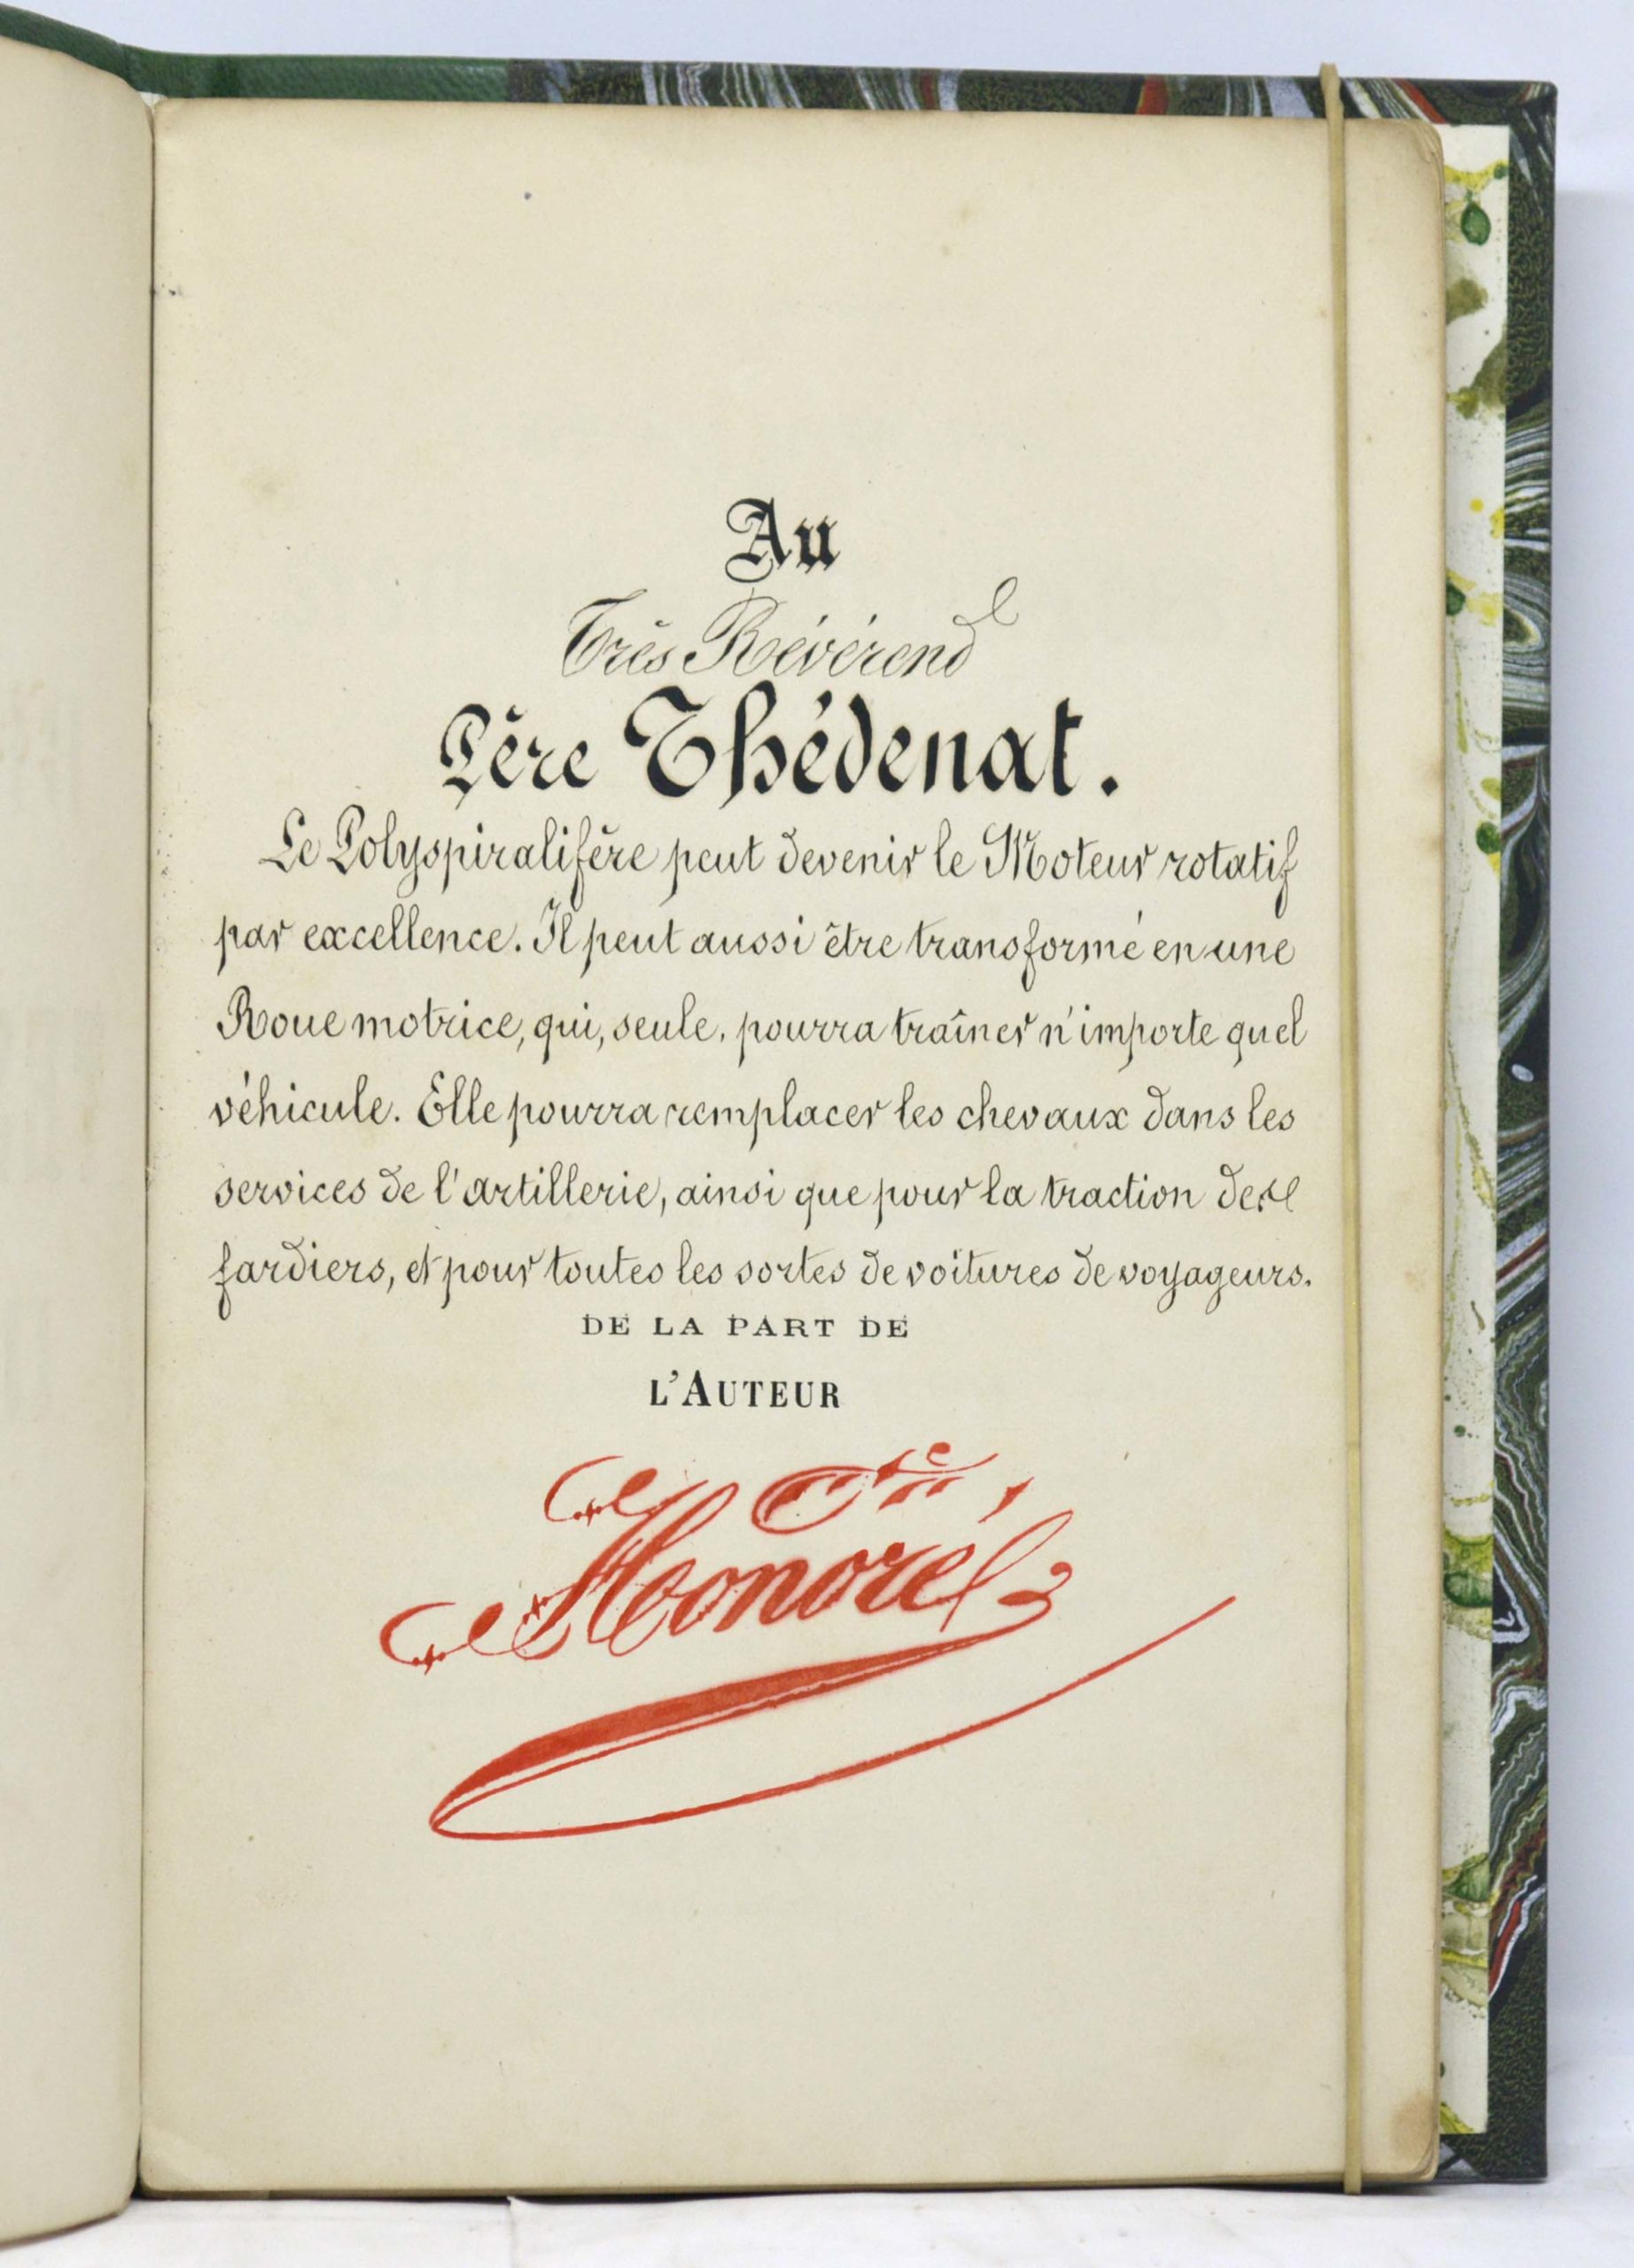 Au
Très Révérend
Père Thédenat.
Le Polyspiralifère peut devenir le Moteur rotatif
par excellence. Il peut aussi être transformé en une
Roue motrice, qui, seule, pourra traîner n'importe quel
véhicule. Elle pourra remplacer les chevaux dans les
services de l'artillerie, ainsi que pour la traction des
fardiers, et pour toutes les sortes de voitures de voyageurs.
DE LA PART DE
L'AUTEUR
Honoré